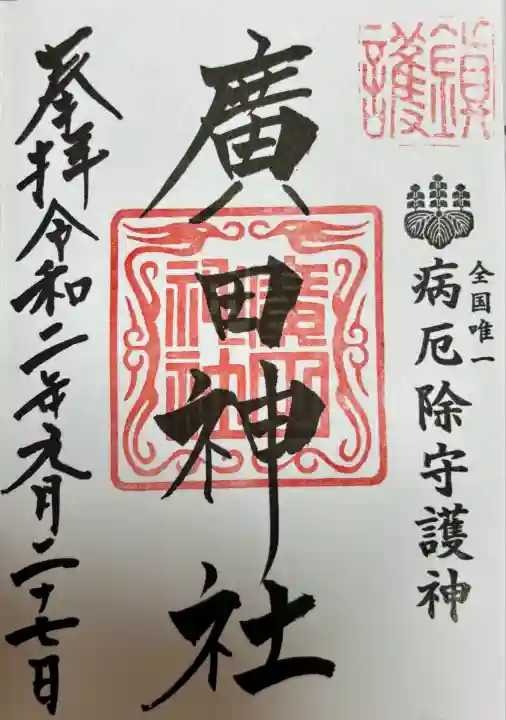 鎮護
全国唯一
病厄除守護神
廣田神社
廣田神社
奉拝令和二年元月二十七日